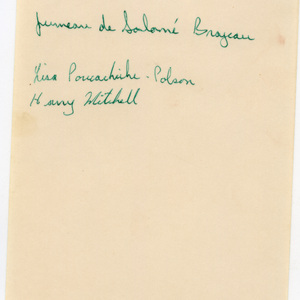 jumeau de Salomé Brazeau
Lisa Poucachiche-Polson
Harry Mitchell